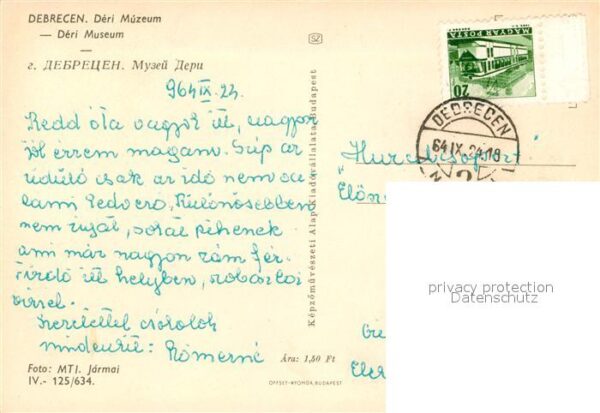 DEBRECEN. Déri Múzeum
— Déri Museum
—
г. ДЕБРЕЦЕН. Музей Дери
964 IX. 24.
Kedd óta vagyok itt, nagyon
jól érzem magam. Szép az
üdülő csak az idő nem va
lami kedvező. Különösebben
nem izgat, sokat pihenek
ami már nagyon rám fér.
Fürdő itt helyben,
vízzel.
Szeretettel csókolok
mindenkit: Rómerné
Foto: MTI. Jármai
IV.- 125/634.
Ára: 1,50 Ft
OFFSET-NYOMDA, BUDAPEST
Képzőművészeti Alap Kiadóvállalata, Budapest
MAGYAR POSTA
20
DEBRECEN
64 IX. 24. 18
2
privacy protection
Datenschutz